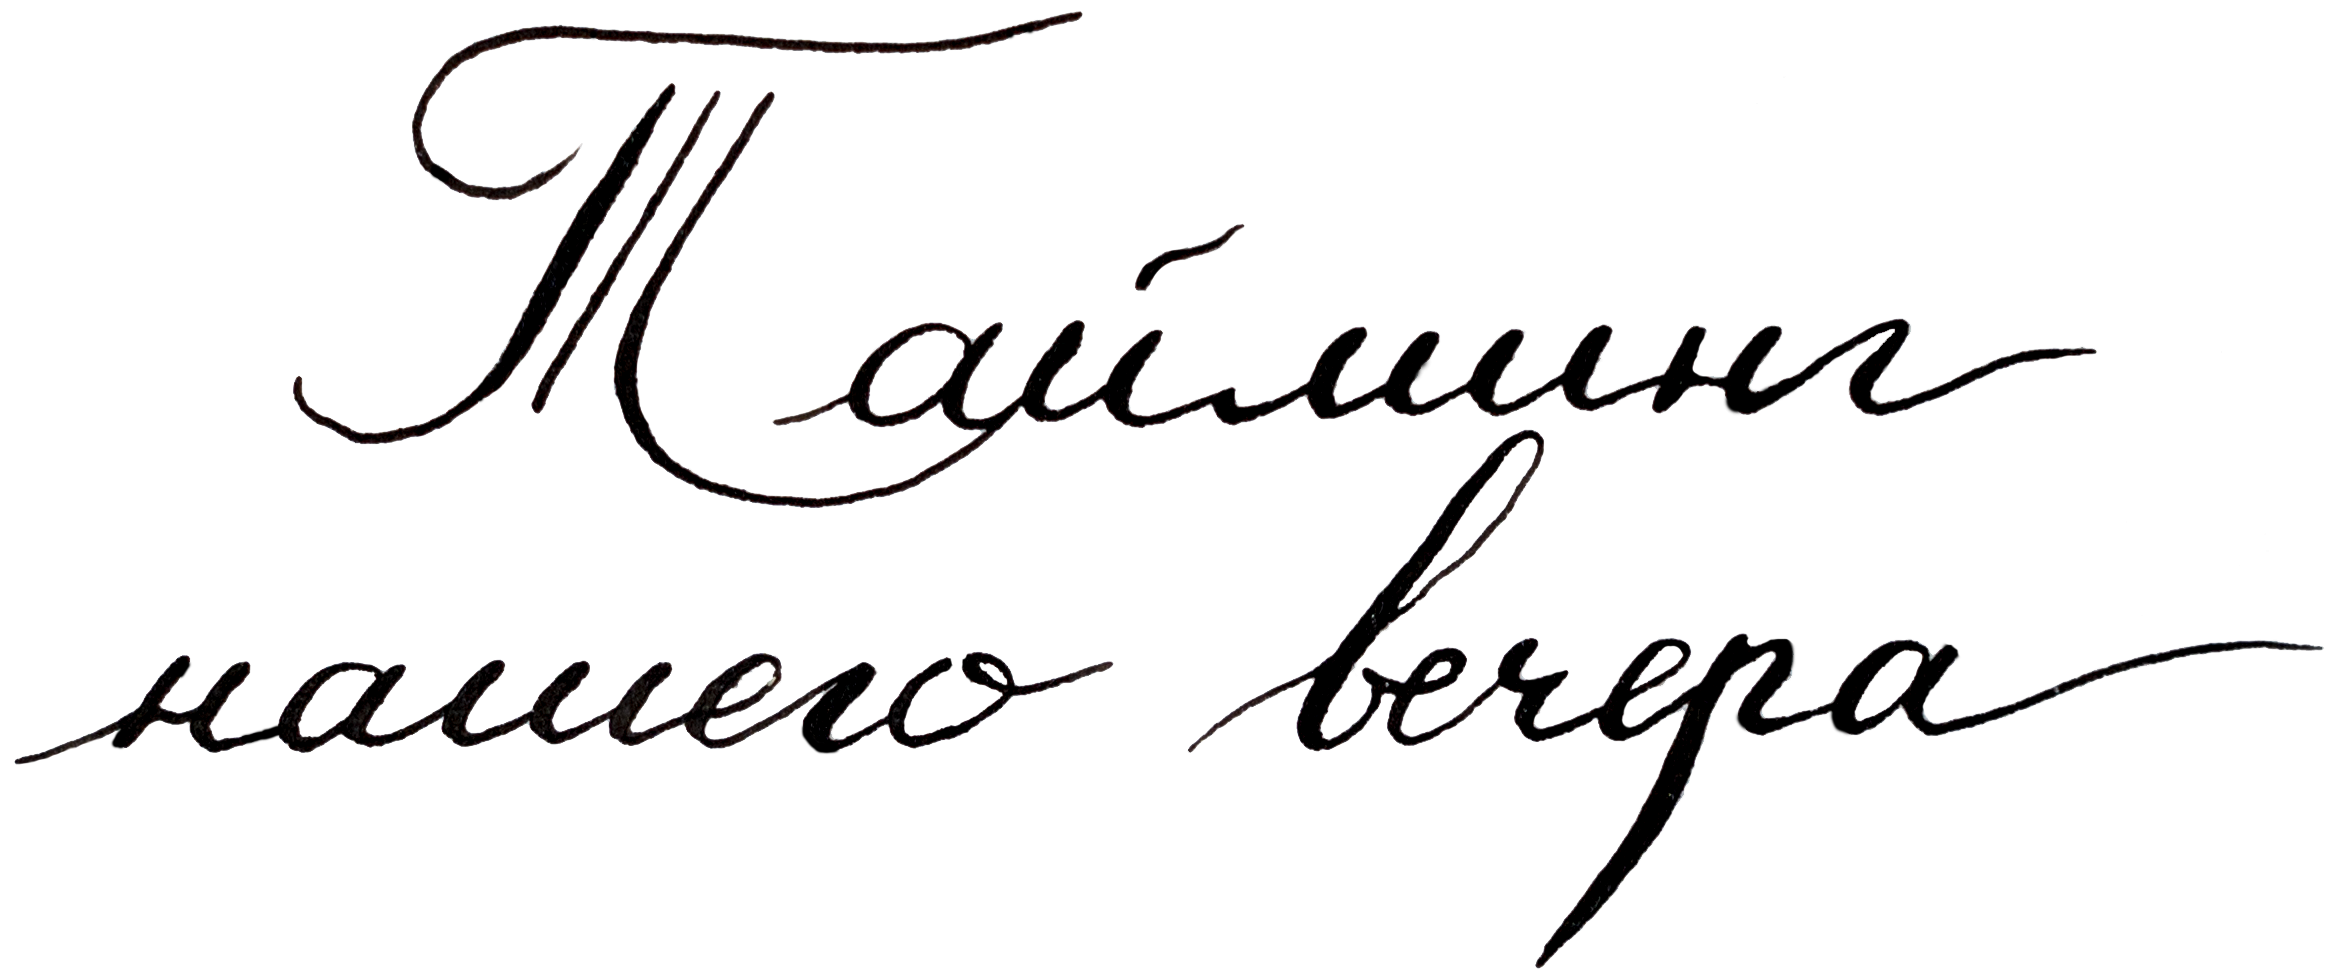 Тайминг
нашего вечера